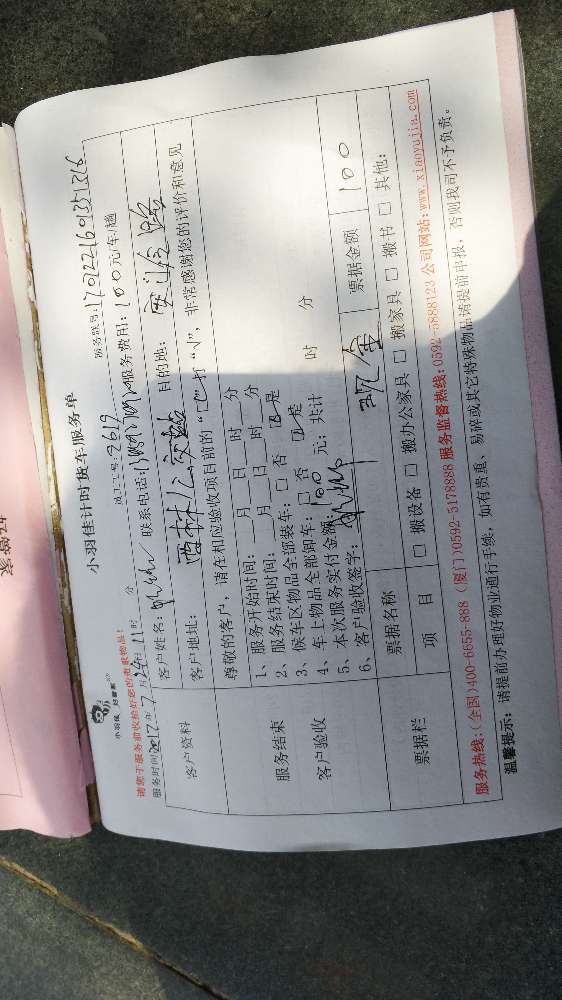 小羽佳计时货车服务单
小羽佳 好管家
请您于服务前收捡好您的贵重物品!
服务时间2017年7月29日11时 分 员工工号:2619 服务账号:1701221601351316
客户资料
客户姓名: 联系电话: 服务费用:100元/车/趟
客户地址:西林公交站 目的地:
服务结束
客户验收
尊敬的客户,请在相应验收项目前的“□”打“√”,非常感谢您的评价和意见
1、服务开始时间: 月 日 时 分
2、服务结束时间: 月 日 时 分
3、候车区物品全部装车:□ 否 ☑是
4、车上物品全部卸车:□ 否 ☑是
5、本次服务实付金额:100 元;共计 时 分
6、客户验收签字:
票据栏
票据名称 现金 票据金额 100
项 目 □ 搬设备 □ 搬办公家具 □ 搬家具 □ 搬书 □ 其他:
服务热线:(全国)400-6655-888 (厦门)0592-5178888 服务监督热线:0592-5888123 公司网站:www.xiaoyujia.com
温馨提示:请提前办理好物业通行手续,如有贵重、易碎或其它特殊物品请提前申报,否则我司不予负责。
好管家